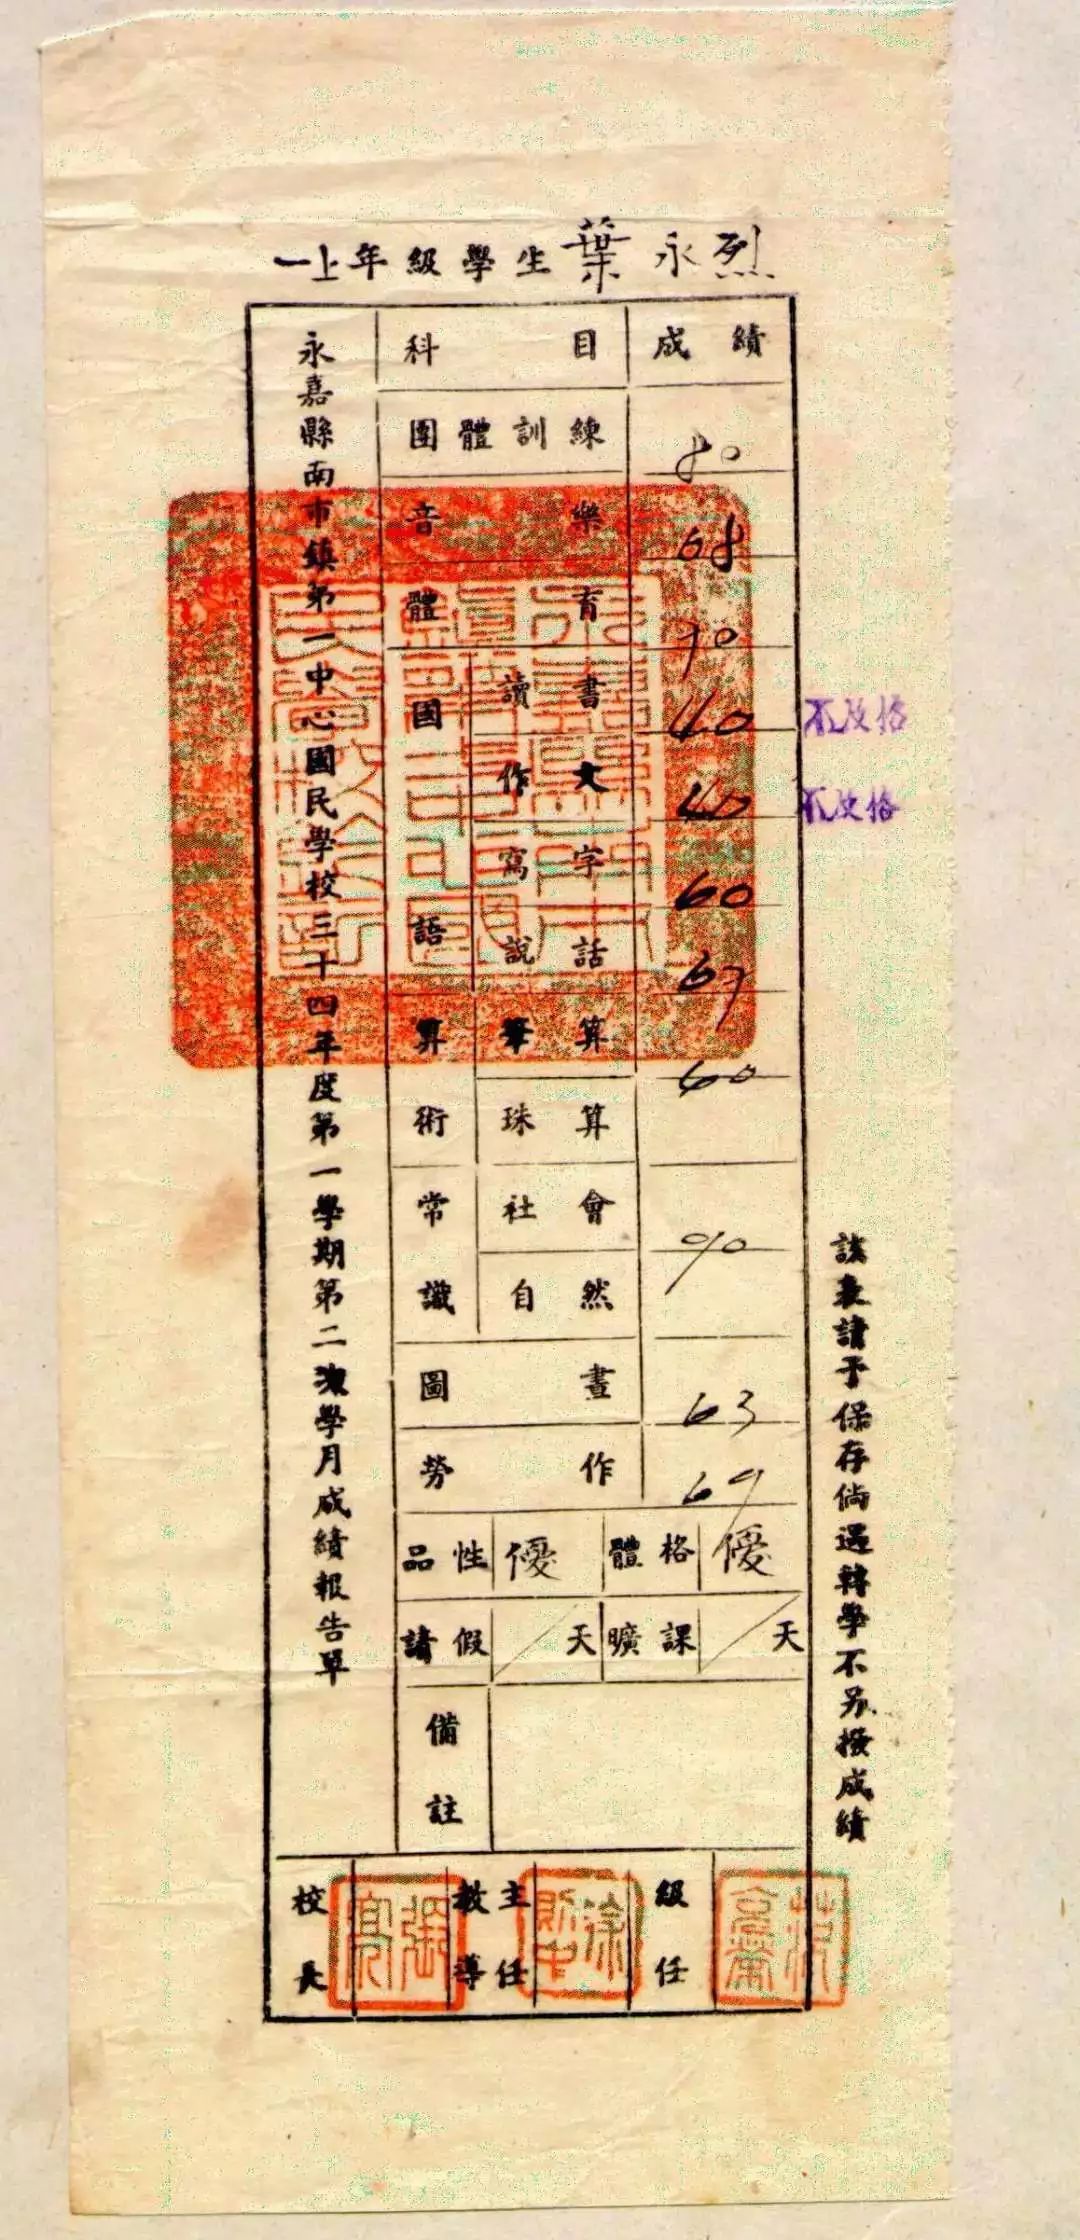 一上年級學生葉永烈
永嘉縣南市鎮第一中心國民學校三十四年度第一學期第二次學月成績報告單
科目 成績
團體訓練 80
音樂 68
體育 90
國語 讀書 40 不及格
作文 40 不及格
寫字 60
說話 67
算術 筆算 60
珠算
常識 社會 90
自然
圖畫 63
勞作 69
品性 優 體格 優
請假 / 天 曠課 / 天
備註
校長 教導主任 級任
該表請予保存倘遇轉學不另撥成績